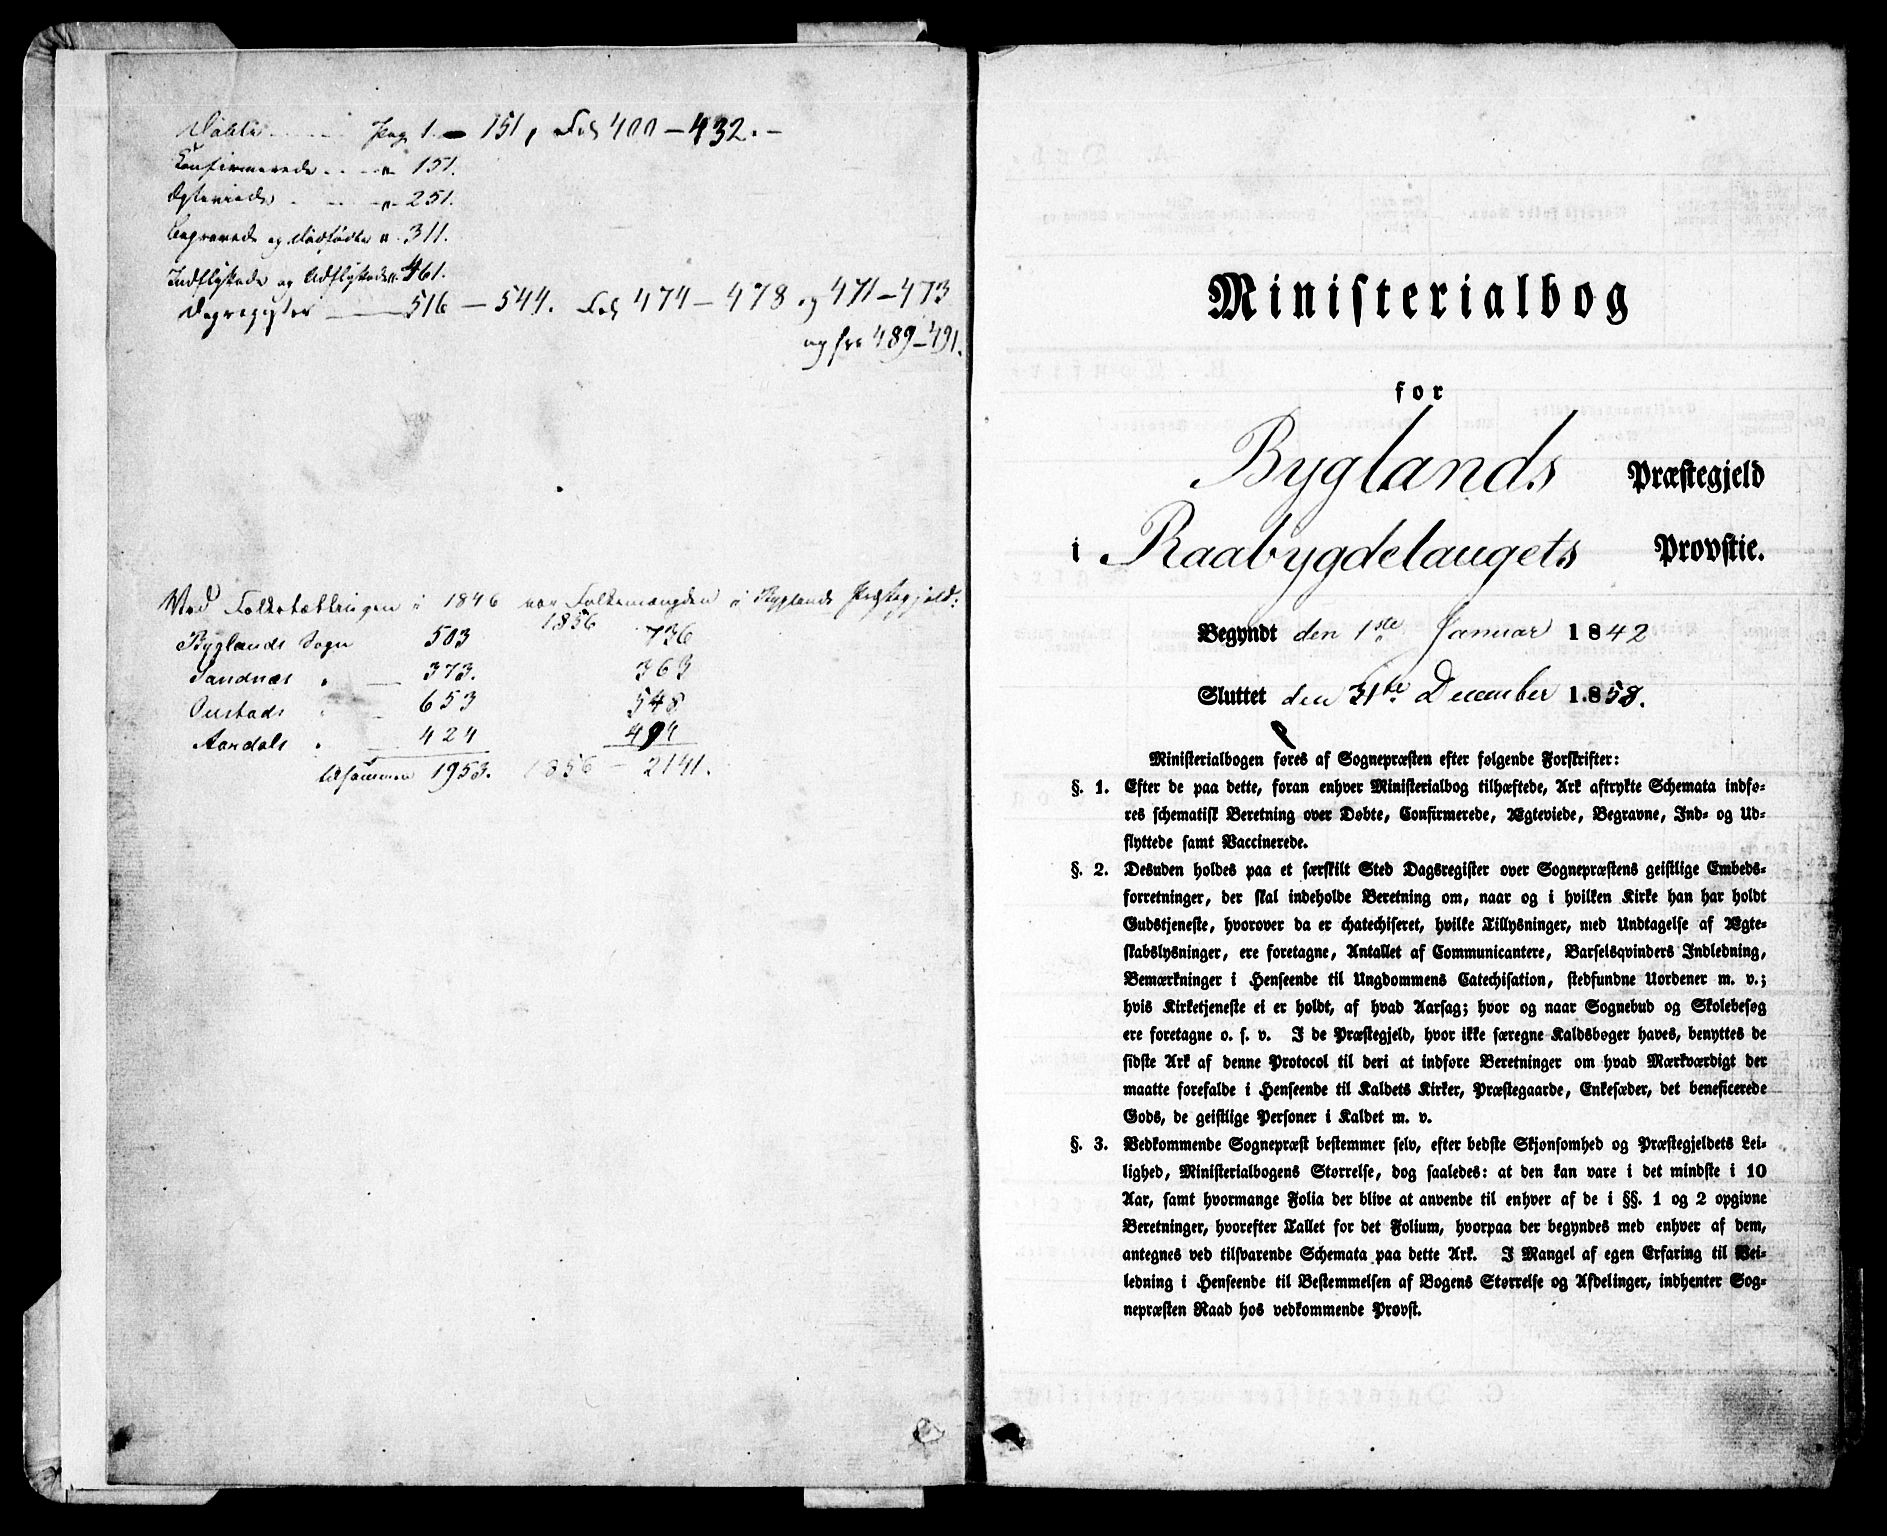 Døbte Pag 1. — 151, Fol 400 — 432. —
Konfirmerede " 151.
Ægteviede " 251.
Begravede og Dødfødte " 311.
Indflyttede og Udflyttede " 461.
Dagregister — 516 — 544. Fol 474 — 478 og 471 — 473
og fra 489 — 491.
Ved Folketællingen i 1846 var Folkemængden i Byglands Præstegjeld:
1856
Byglands Sogn 503 736
Sandnæs " — 373. 363
Oustads " — 653 548
Aardals " — 424 494
Tilsammen 1953. 1856 — 2141.
Ministerialbog
for
Byglands Præstegjeld
i Raabygdelaugets Provstie.
Begyndt den 1ste Januar 1842
Sluttet den 31te December 1858.
Ministerialbogen føres af Sognepræsten efter følgende Forskrifter:
§. 1. Efter de paa dette, foran enhver Ministerialbog tilhæftede, Ark aftrykte Schemata indfø-
res schematisk Beretning over Døbte, Confirmerede, Ægteviede, Begravne, Ind- og Ud-
flyttede samt Vaccinerede.
§. 2. Desuden holdes paa et særskilt Sted Dagsregister over Sognepræstens geistlige Embeds-
forretninger, der skal indeholde Beretning om, naar og i hvilken Kirke han har holdt
Gudstjeneste, hvorover da er chatechiseret, hvilke Tillysninger, med Undtagelse af Ægte-
skabslysninger, ere foretagne, Antallet af Communicantere, Barselsqvinders Indledning,
Bemærkninger i Henseende til Ungdommens Catechisation, stedfundne Uordener m. v.;
hvis Kirketjeneste ei er holdt, af hvad Aarsag; hvor og naar Sognebud og Skolebesøg
ere foretagne o. s. v. I de Præstegjeld, hvor ikke særegne Kaldsbøger haves, benyttes de
sidste Ark af denne Protocol til deri at indføre Beretninger om hvad Mærkværdigt der
maatte forefalde i Henseende til Kaldets Kirker, Præstegaarde, Enkesæder, det beneficerede
Gods, de geistlige Personer i Kaldet m. v.
§. 3. Vedkommende Sognepræst bestemmer selv, efter bedste Skjønsomhed og Præstegjeldets Lei-
lighed, Ministerialbogens Størrelse, dog saaledes: at den kan vare i det mindste i 10
Aar, samt hvormange Folia der blive at anvende til enhver af de i §§. 1 og 2 opgivne
Beretninger, hvorefter Tallet for det Folium, hvorpaa der begyndes med enhver af dem,
antegnes ved tilsvarende Schemata paa dette Ark. I Mangel af egen Erfaring til Vei-
ledning i Henseende til Bestemmelsen af Bogens Størrelse og Afdelinger, indhenter Sog-
nepræsten Raad hos vedkommende Provst.